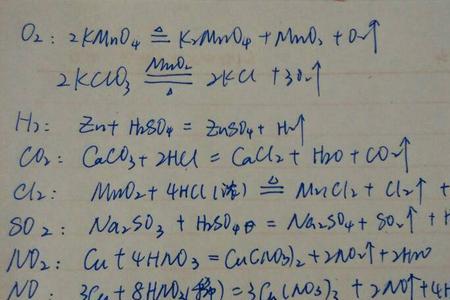 O₂: 2KMnO₄ ≜ K₂MnO₄ + MnO₂ + O₂↑
2KClO₃ MnO₂ △ 2KCl + 3O₂↑
H₂: Zn + H₂SO₄ = ZnSO₄ + H₂↑
CO₂: CaCO₃ + 2HCl = CaCl₂ + H₂O + CO₂↑
Cl₂: MnO₂ + 4HCl(浓) ≜ MnCl₂ + Cl₂↑ +
SO₂: Na₂SO₃ + H₂SO₄ = Na₂SO₄ + SO₂↑ + H
NO₂: Cu + 4HNO₃ = Cu(NO₃)₂ + 2NO₂↑ + 2H₂O
NO: 3Cu + 8HNO₃(稀) = 3Cu(NO₃)₂ + 2NO↑ + 4H